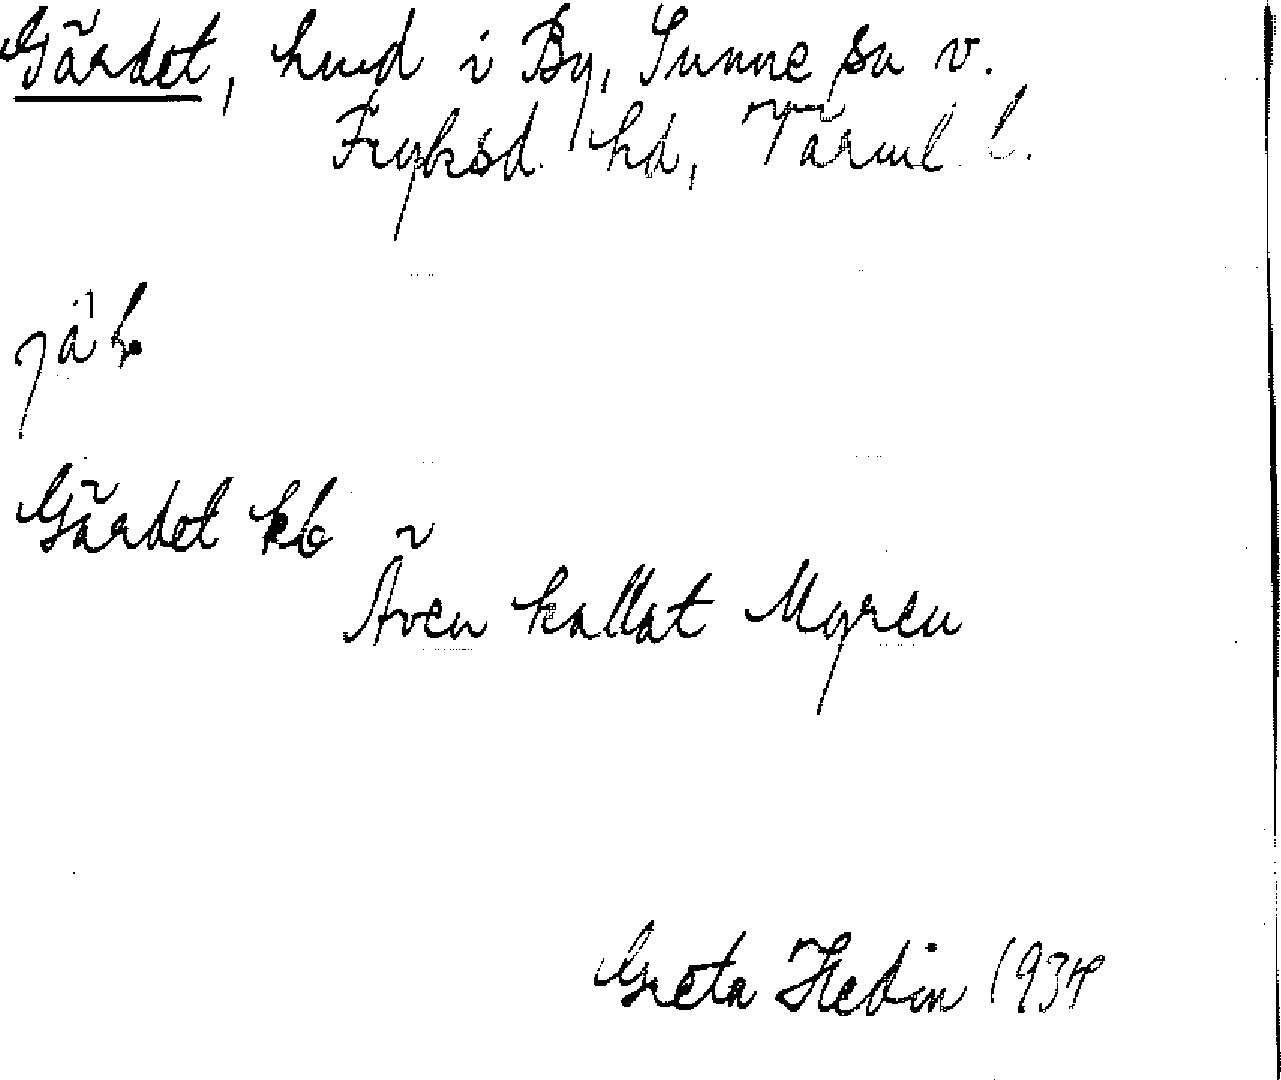 Gärdet, hmd i By, Sunne sn v.
Fryksd. hd, Värml. l.
Gärdet kb
Även kallat Myren
Greta Hedin 1934